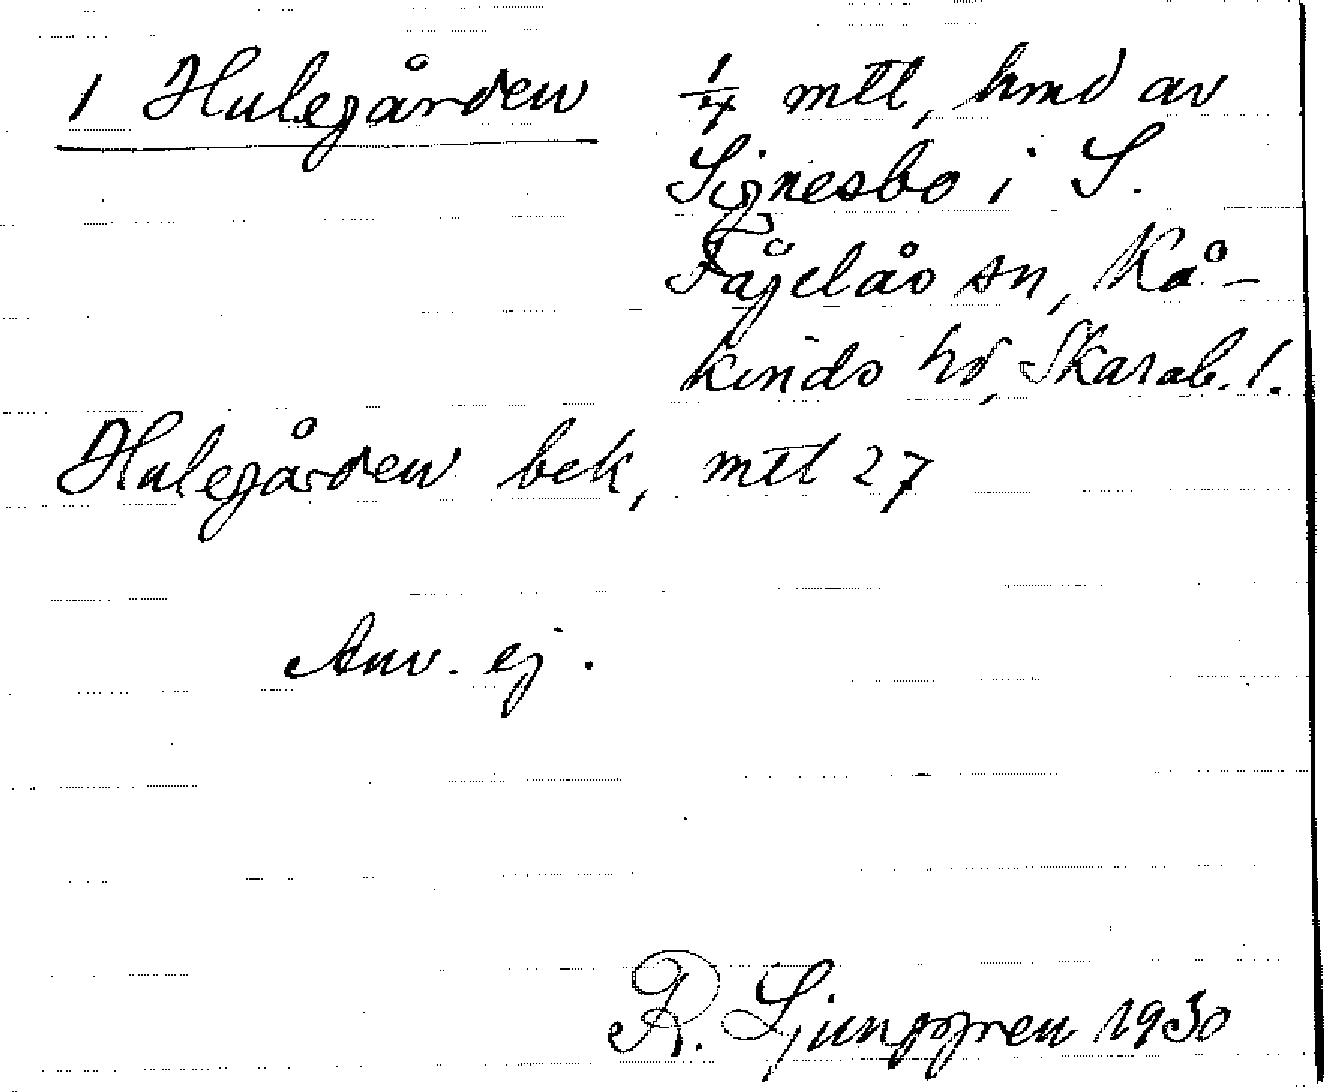 1 Hulegården ¼ mtl, hmd av
Signesbo i S.
Fågelås sn, Kå-
kinds hd, Skarab. l.
Hulegården bek, mtl 27
Anv. ej.
R. Ljunggren 1930